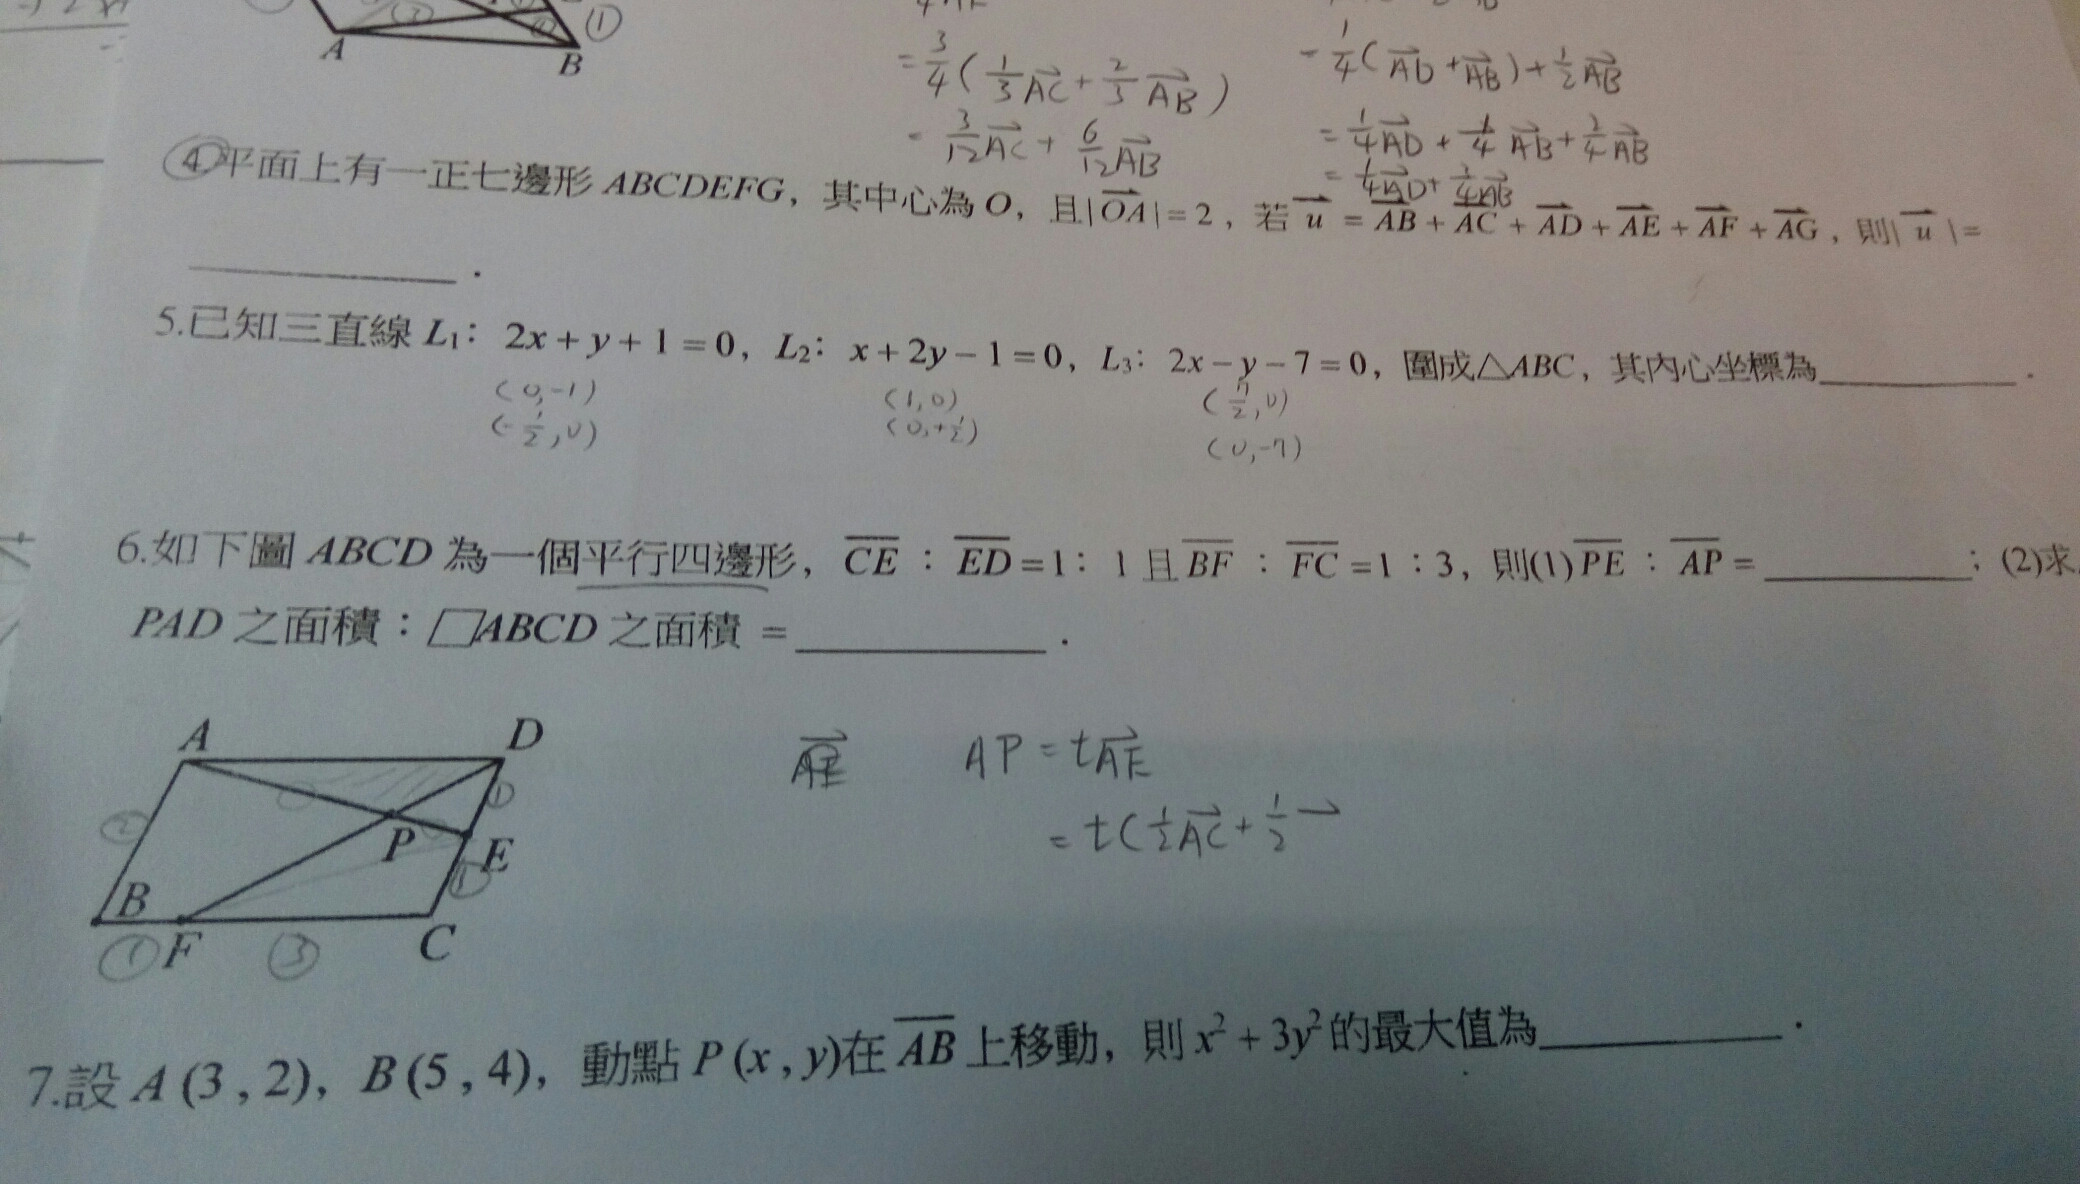 A B ①
= 3/4 ( 1/3 AC + 2/3 AB )
= 3/12 AC + 6/12 AB
= 1/4 ( AD + AB ) + 1/2 AB
= 1/4 AD + 1/4 AB + 2/4 AB
= 1/4 AD + 3/4 AB
4.平面上有一正七邊形 ABCDEFG，其中心為 O，且|OA|=2，若 u = AB + AC + AD + AE + AF + AG，則| u |=
.
5.已知三直線 L₁：2x+y+1=0，L₂：x+2y−1=0，L₃：2x−y−7=0，圍成△ABC，其內心坐標為 .
(0,-1) (1,0) (7/2,0)
(-1/2,0) (0,+1/2) (0,-7)
6.如下圖 ABCD 為一個平行四邊形，CE：ED=1：1 且 BF：FC=1：3，則(1)PE：AP= ；(2)求
PAD 之面積：▱ABCD 之面積 = .
A D
② ①
P E
①
B F C
① ③
AE AP = tAE
= t( 1/2 AC + 1/2
7.設 A (3 , 2)，B (5 , 4)，動點 P (x , y)在 AB 上移動，則 x² + 3y² 的最大值為 .